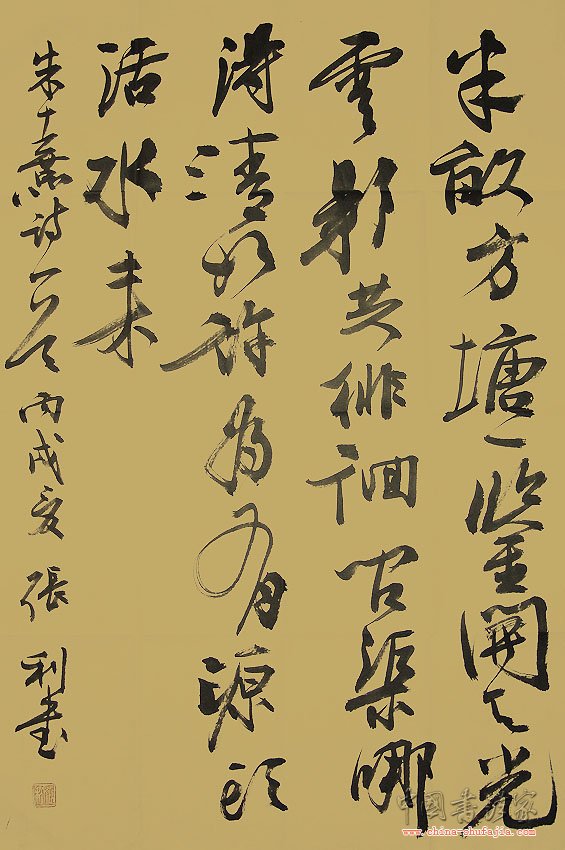 半畝方塘一鑒開天光
雲影共徘徊问渠哪
得清如許為有源頭
活水来
朱熹诗一首 丙戌夏 張利書
中國書法家
www.china-shufajia.com